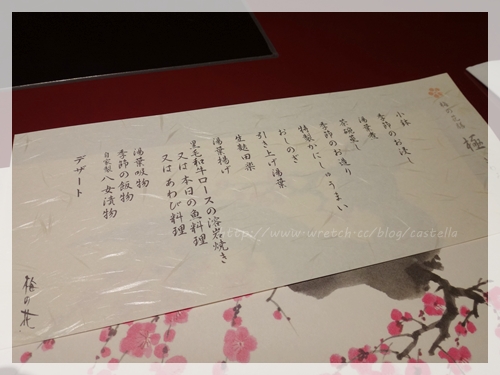 梅の花膳
極
小鉢
季節のお浸し
湯葉煮
茶碗蒸し
季節のお造り
特製かにしゅうまい
おしのぎ
引き上げ湯葉
生麩田楽
湯葉揚げ
黒毛和牛ロースの溶岩焼き
又は本日の魚料理
又はあわび料理
湯葉吸物
季節の飯物
自家製八女漬物
デザート
梅の花
http://www.wretch.cc/blog/castella